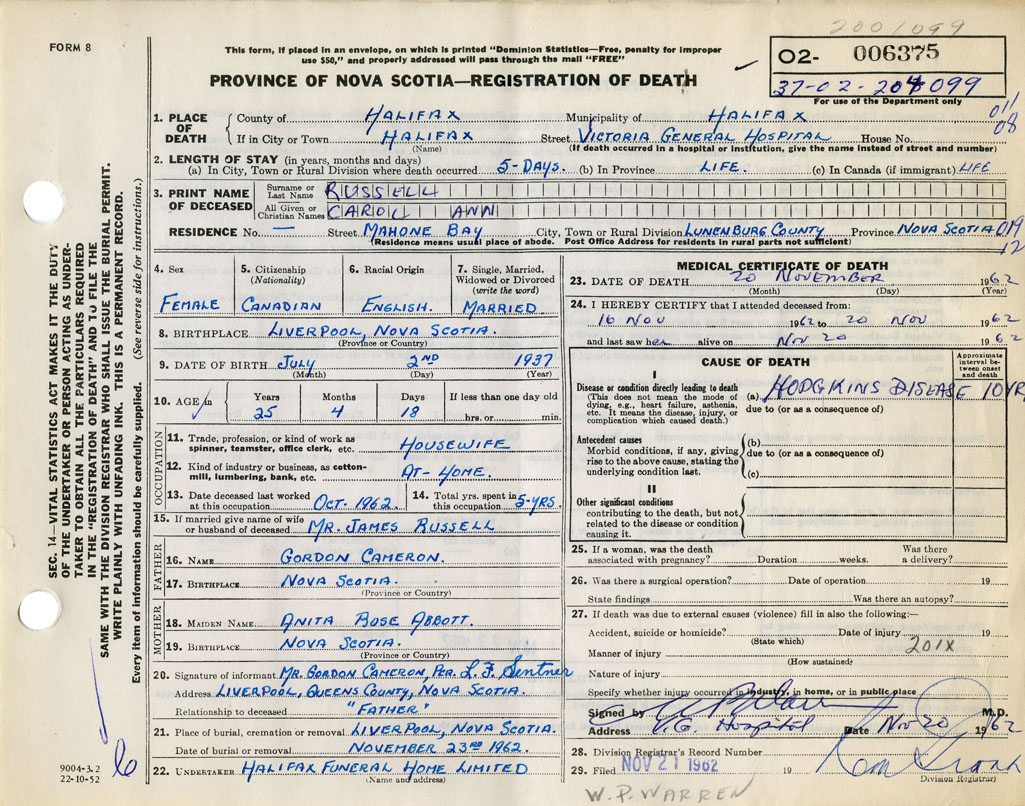 2001099
FORM 8
This form, if placed in an envelope, on which is printed "Dominion Statistics—Free, penalty for improper
use $50," and properly addressed will pass through the mail "FREE"
PROVINCE OF NOVA SCOTIA—REGISTRATION OF DEATH
O2- 006375
37-02-204099
For use of the Department only
011
08
1. PLACE OF DEATH
County of HALIFAX Municipality of HALIFAX
If in City or Town HALIFAX Street VICTORIA GENERAL HOSPITAL House No.
(Name) (If death occurred in a hospital or institution, give the name instead of street and number)
2. LENGTH OF STAY (in years, months and days)
(a) In City, Town or Rural Division where death occurred 5-DAYS. (b) In Province LIFE. (c) In Canada (if immigrant) LIFE
3. PRINT NAME OF DECEASED
Surname or Last Name RUSSELL
All Given or Christian Names CAROLL ANN
RESIDENCE No. — Street MAHONE BAY City, Town or Rural Division LUNENBURG COUNTY Province NOVA SCOTIA 019
12
(Residence means usual place of abode. Post Office Address for residents in rural parts not sufficient)
4. Sex
FEMALE
5. Citizenship
(Nationality)
CANADIAN
6. Racial Origin
ENGLISH.
7. Single, Married,
Widowed or Divorced
(write the word)
MARRIED
8. BIRTHPLACE LIVERPOOL, NOVA SCOTIA.
(Province or Country)
9. DATE OF BIRTH July 2ND 1937
(Month) (Day) (Year)
10. AGE in
Years Months Days If less than one day old
25 4 18 hrs. or min.
OCCUPATION
11. Trade, profession, or kind of work as
spinner, teamster, office clerk, etc. HOUSEWIFE
12. Kind of industry or business, as cotton-
mill, lumbering, bank, etc. AT-HOME.
13. Date deceased last worked
at this occupation OCT. 1962.
14. Total yrs. spent in
this occupation 5-YRS.
15. If married give name of wife
or husband of deceased MR. JAMES RUSSELL
FATHER
16. NAME GORDON CAMERON.
17. BIRTHPLACE NOVA SCOTIA.
(Province or Country)
MOTHER
18. MAIDEN NAME ANITA ROSE ABBOTT.
19. BIRTHPLACE NOVA SCOTIA.
(Province or Country)
20. Signature of informant MR. GORDON CAMERON, PER. L. F. Sentner
Address LIVERPOOL, QUEENS COUNTY, NOVA SCOTIA.
Relationship to deceased "FATHER"
21. Place of burial, cremation or removal LIVERPOOL, NOVA SCOTIA.
Date of burial or removal NOVEMBER 23RD 1962.
22. UNDERTAKER HALIFAX FUNERAL HOME LIMITED
(Name and address)
MEDICAL CERTIFICATE OF DEATH
23. DATE OF DEATH 20 NOVEMBER 1962
(Month) (Day) (Year)
24. I HEREBY CERTIFY that I attended deceased from:
16 NOV 1962 to 20 NOV 1962
and last saw her alive on NOV 20 1962
CAUSE OF DEATH
Approximate interval between onset and death
I
Disease or condition directly leading to death
(This does not mean the mode of
dying, e.g., heart failure, asthenia,
etc. It means the disease, injury, or
complication which caused death.)
(a) HODGKINS DISEASE 10YR
due to (or as a consequence of)
Antecedent causes
Morbid conditions, if any, giving
rise to the above cause, stating the
underlying condition last.
(b)
due to (or as a consequence of)
(c)
II
Other significant conditions
contributing to the death, but not
related to the disease or condition
causing it.
25. If a woman, was the death
associated with pregnancy? Duration weeks. Was there a delivery?
26. Was there a surgical operation? Date of operation 19
State findings Was there an autopsy?
27. If death was due to external causes (violence) fill in also the following:—
Accident, suicide or homicide? Date of injury 19
(State which)
Manner of injury 201X
(How sustained)
Nature of injury
Specify whether injury occurred in industry, in home, or in public place
Signed by M.D.
Address V.G. Hospital Date Nov 20 1962
28. Division Registrar's Record Number
29. Filed NOV 21 1962 19
Division Registrar)
W. P. WARREN
SEC. 14—VITAL STATISTICS ACT MAKES IT THE DUTY
OF THE UNDERTAKER OR PERSON ACTING AS UNDER-
TAKER TO OBTAIN ALL THE PARTICULARS REQUIRED
IN THE "REGISTRATION OF DEATH" AND TO FILE THE
SAME WITH THE DIVISION REGISTRAR WHO SHALL ISSUE THE BURIAL PERMIT.
WRITE PLAINLY WITH UNFADING INK. THIS IS A PERMANENT RECORD.
Every item of information should be carefully supplied. (See reverse side for instructions.)
9004-3.2
22-10-52